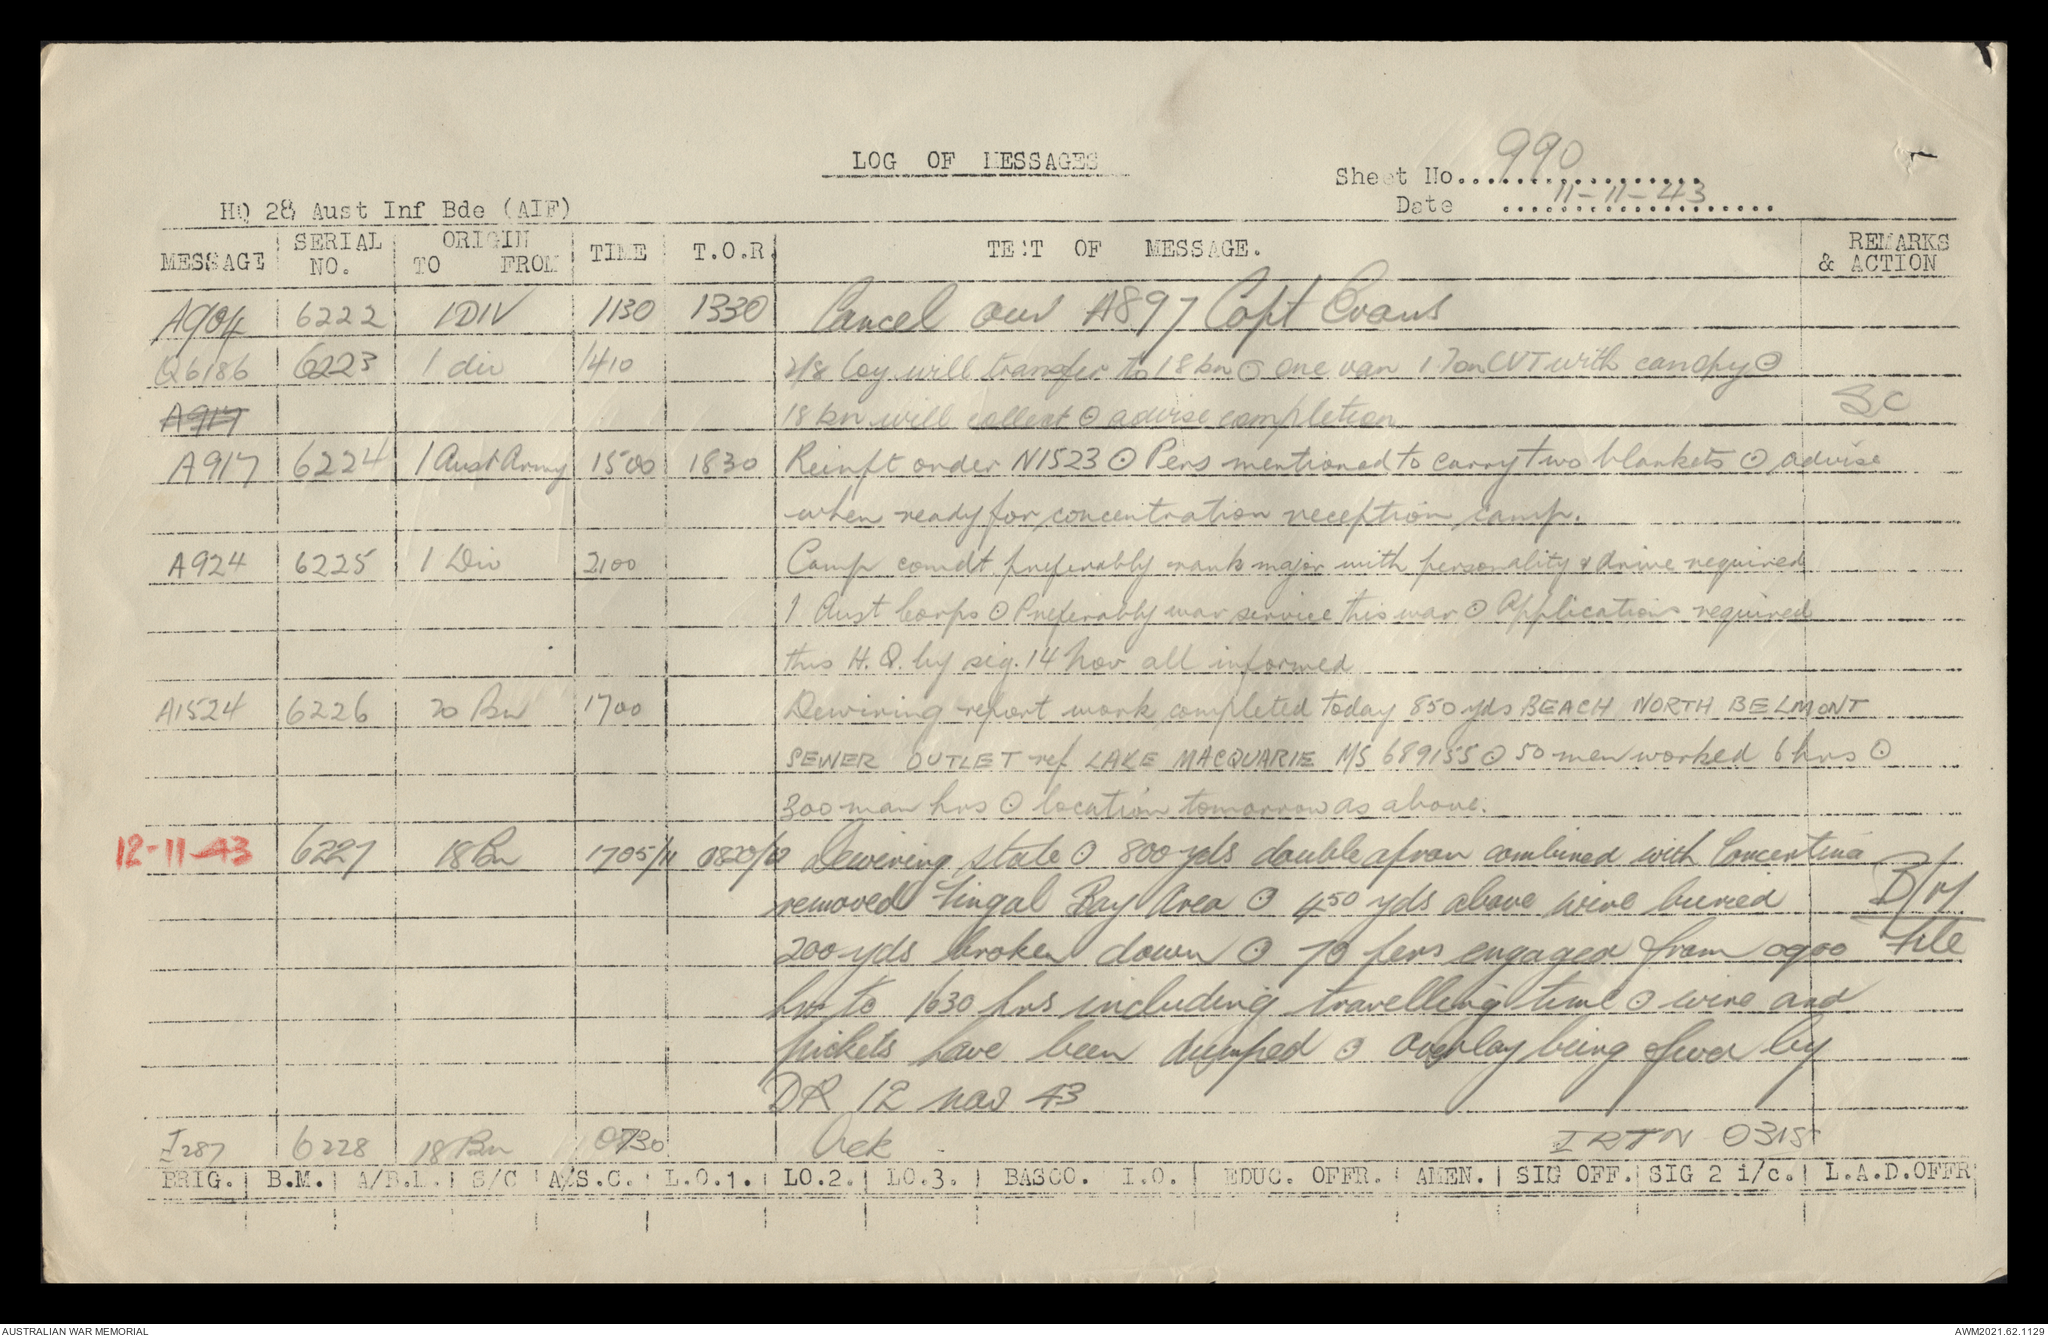 LOG OF MESSAGES
Sheet No. 990
HQ 28 Aust Inf Bde (AIF)
Date 11-11-43
MESSAGE SERIAL NO. ORIGIN TO FROM TIME T.O.R. TEXT OF MESSAGE. REMARKS & ACTION
A904 6222 1DIV 1130 1330 Cancel our A897 Capt Evans
Q6186 6223 1 div 1410 2/8 Coy will transfer to 18 bn ⊙ one van 1 Ton CVT with canopy ⊙
A917 18 bn will collect ⊙ advise completion SC
A917 6224 1 Aust Army 1500 1830 Reinft order N1523 ⊙ Pers mentioned to carry two blankets ⊙ advise
when ready for concentration reception camp.
A924 6225 1 Div 2100 Camp comdt preferably rank major with personality & drive required
1 Aust Corps ⊙ Preferably war service this war ⊙ Applications required
this H.Q. by sig. 14 Nov all informed
A1524 6226 20 Bn 1700 Dewiring report work completed today 850 yds BEACH NORTH BELMONT
SEWER OUTLET ref LAKE MACQUARIE M/S 689155 ⊙ 50 men worked 6 hrs ⊙
300 man hrs ⊙ location tomorrow as above.
12-11-43 6227 18 Bn 1705/11 0820/12 Dewiring state ⊙ 800 yds double apron combined with Concertina
removed Fingal Bay Area ⊙ 450 yds above wire buried
200 yds broken down ⊙ 70 pers engaged from 0900 File
hrs to 1630 hrs including travelling time ⊙ wire and
pickets have been dumped ⊙ Overlay being fwd by
DR 12 Nov 43
I287 6228 18 Bn 0730 Ack IRTN 0315
BRIG. B.M. A/B.M. S/C A/S.C. L.O.1. LO.2. LO.3. BASCO. I.O. EDUC. OFFR. AMEN. SIG OFF. SIG 2 i/c. L.A.D.OFFR
AUSTRALIAN WAR MEMORIAL AWM2021.62.1129